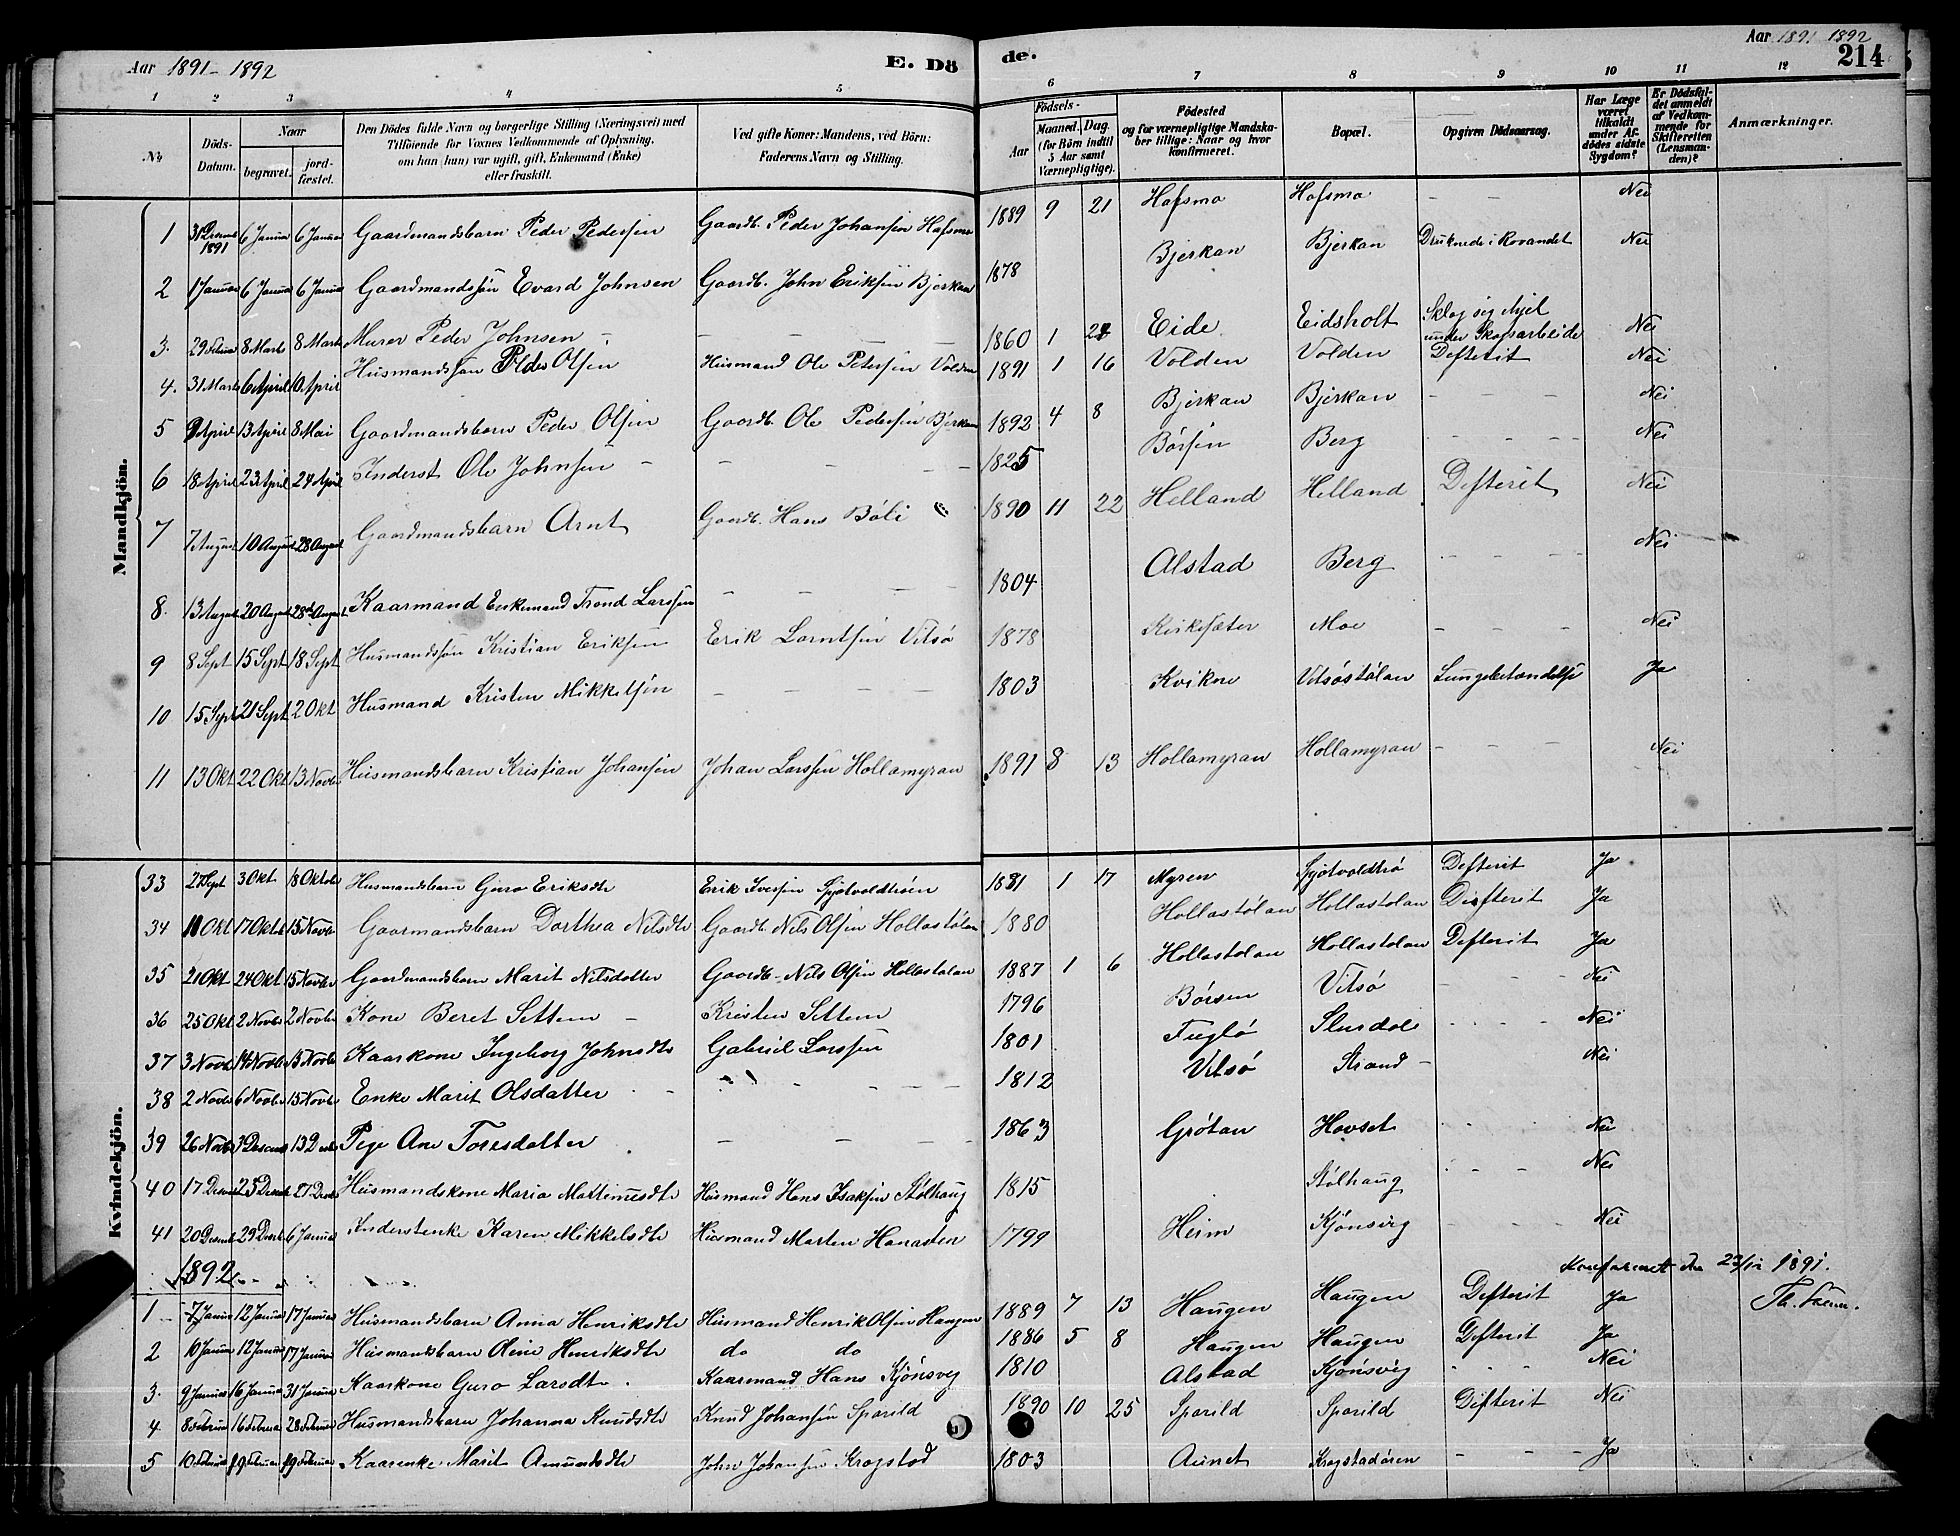 Aar 1891-1892 E. Dö de. Aar 1891 1892
214
1 2 3 4 5 6 7 8 9 10 11 12
No
Döds-Datum.
Naar
begravet.
jord-fæstet.
Den Dödes fulde Navn og borgerlige Stilling (Næringsvei) med
Tilföiende for Voxnes Vedkommende af Oplysning,
om han (hun) var ugift, gift, Enkemand (Enke)
eller fraskilt.
Ved gifte Koner: Mandens, ved Börn:
Faderens Navn og Stilling.
Födsels-
Aar
Maaned. Dag.
(for Börn indtil
5 Aar samt
Værnepligtige).
Födested
og for værnepligtige Mandska-
ber tillige: Naar og hvor
konfirmeret.
Bopæl.
Opgiven Dödsaarsag.
Har Læge
været
tilkaldt
under Af-
dödes sidste
Sygdom?
Er Dödsfal-
det anmeldt
af Vedkom-
mende for
Skifteretten
(Lensman-
den)?
Anmærkninger.
Mandkjön.
1 31 Desem 1891 6 Janua 6 Janua Gaardmandsbarn Peder Pedersen Gaardb. Peder Johansen Hafsmo 1889 9 21 Hafsmo Hafsmo – – Nei
2 1 Janua 6 Janua 6 Janua Gaardmandssön Evard Johnsen Gaardb. John Eriksen Bjerkan 1878 Bjerkan Bjerkan Druknede i Rovandet Nei
3. 29 Februa 8 Marts 8 Marts Murer Peder Johnsen – – – – 1860 1 Eide Eidsholt Slog sig ihjel under Skofsarbeide Nei
4. 31 Marts 6 April 10 April Husmandssön Peder Olsen Husmand Ole Petersen Volden 1891 1 16 Volden Volden Defterit Nei
5 9 April 13 April 8 Mai Gaardmandsbarn Peder Olsen Gaardb. Ole Pedersen Bjerkan 1892 4 8 Bjerkan Bjerkan – – – Nei
6 18 April 23 April 24 April Inderst Ole Johnsen – – – – – 1825 Börsen Berg – – – Nei
7 7 August 10 August 28 August Gaardmandsbarn Arnt Gaardb. Hans Böli 1890 11 22 Helland Helland Defterit Nei
8. 13 August 20 August 28de August Kaarmand Enkemand Trond Larssen – – – – 1804 Alstad Berg – – – Nei
9 8 Sept 15 Sept 18 Sept Husmandssön Kristian Eriksen Erik Larntsen Vitsö 1878 Kirksæter Moe – – – Nei
10 15 Sept 21 Sept 2 Okt Husmand Kristen Mikkelsen – – – – 1803 Kvikne Vitsöstölan Lungebetændelse Ja
11 13 Okt 22 Okt 13 Novbr Husmandsbarn Kristian Johansen Johan Larssen Hollamyran 1891 8 13 Hollamyran Hollamyran – – – Nei
Kvindekjön.
33 27 Sept 3 Okt 18 Oktob Husmandsbarn Guro Eriksdtr Erik Iversen Gjötvoldtröen 1881 1 17 Myren Gjötvoldtrö Defterit Ja
34 11 Okt 17 Oktob 15 Novbr Gaarmandsbarn Dorthea Nilsdtr Gaardb. Nils Olsen Hollastölan 1880 Hollastölan Hollastolan Difterit Ja
35 21 Okt 24 Okt 15 Novbr Gaardmandsbarn Marit Nilsdatter Gaardb. Nils Olsen Hollastolan 1887 1 6 Hollastolan Hollastolan Defterit Ja
36 25 Okt 2 Novbr 2 Novbr Kone Beret Settem – Kristen Settem 1796 Börsen Vitsö – – – Nei
37 3 Novbr 14 Novbr 15 Novbr Kaarkone Ingeborg Johnsdtr Gabriel Larssen 1801 Fuglö Slurdal Nei
38 2 Novbr 6 Novbr 15 Novbr Enke Marit Olsdatter 1812 Vitsö Strand – Nei
39 26 Novbr 3 Desemb 13 Desbr Pige Ane Toresdatter – – – – 1863 Grötan Hovset Nei
40 17 Desemb 25 Desemb 27 Desbr Husmandskone Maria Mattimesdtr Husmand Hans Isaksen Stölhaug 1815 Stölhaug Nei
41 20 Desemb 29 Desemb 6 Janua Inderstenke Karen Mikkelsdtr Husmand Marten Hanasten 1799 Heim Kjönsvig Nei
1892 Konfereret den 23/12 1891.
1 7 Janua 12 Janua 17 Janua Husmandsbarn Anna Henriksdtr Husmand Henrik Olsen Haugen 1889 7 13 Haugen Haugen Defterit Ja
2 10 Janua 12 Janua 17 Janua Husmandsbarn Aine Henriksdtr do do 1886 5 8 Haugen Haugen Defterit Ja
3. 9 Janua 16 Janua 31 Janua Kaarkone Guro Larsdtr. Kaarmand Hans Kjönsvig 1810 Alstad Kjönsvig Nei
4 8 Februa 16 Februa 28 Februa Husmandsbarn Johanna Knudsdtr Knud Johansen Sparild 1890 10 25 Sparild Sparild Difterit Nei
5 10 Februa 19 Februa 19 Februa Kaarenke Marit Amundsdtr John Johansen Krogstad 1803 Aunet Krogstadören – – – Ja